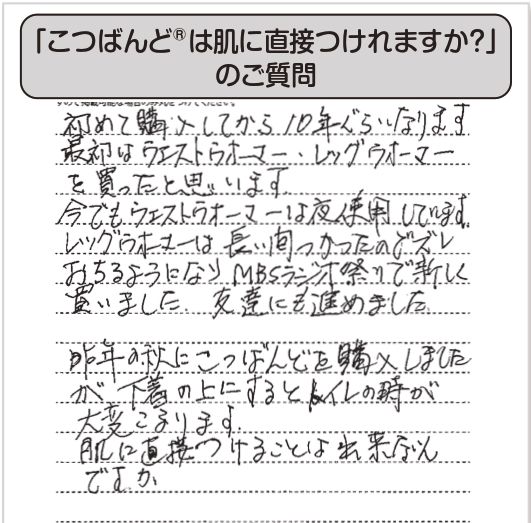 「こつばんど®は肌に直接つけれますか?」
のご質問
初めて購入してから10年ぐらいなります
最初はウエストウオーマー・レッグウオーマー
を買ったと思います。
今でもウエストウオーマーは夜使用しています。
レッグウオーマーは長い間つかったのでズレ
おちるようになりMBSラジオ祭りで新しく
買いました。友達にも進めました。
昨年の秋にこつばんどを購入しました
が下着の上にするとトイレの時が
大変こまります。
肌に直接つけることは出来ない
ですか